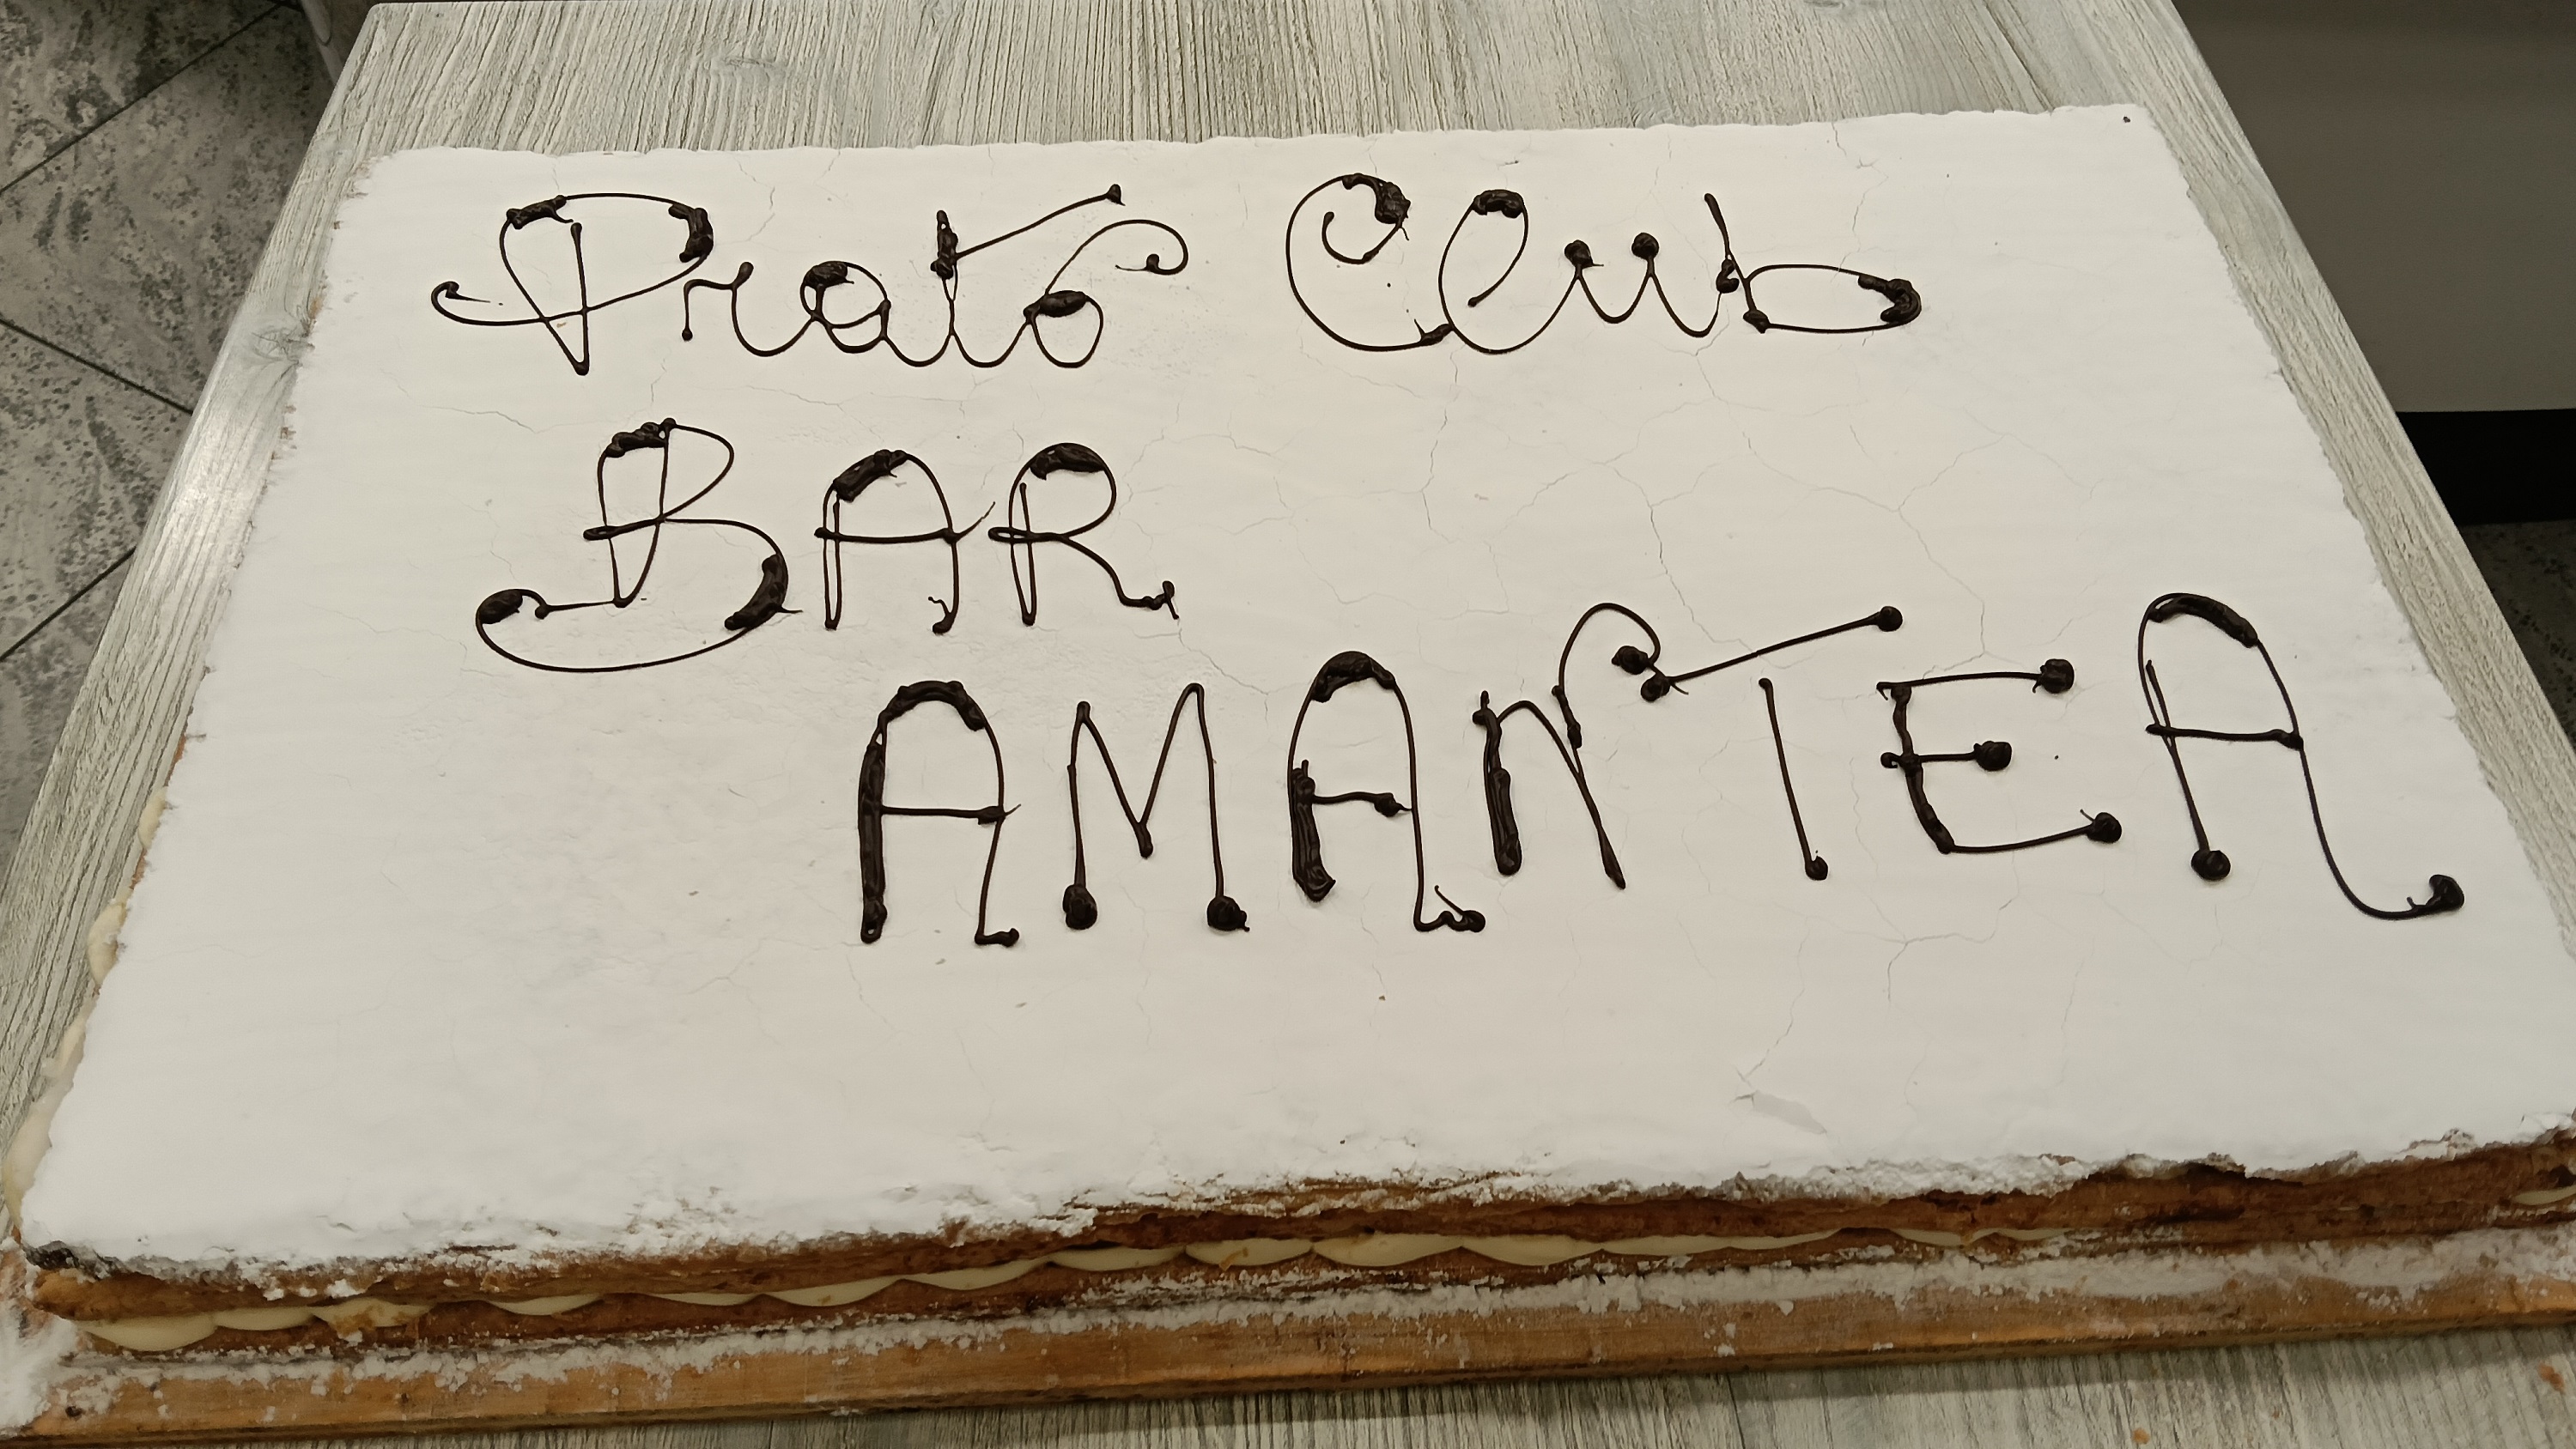 Prato Club
BAR
AMANTEA